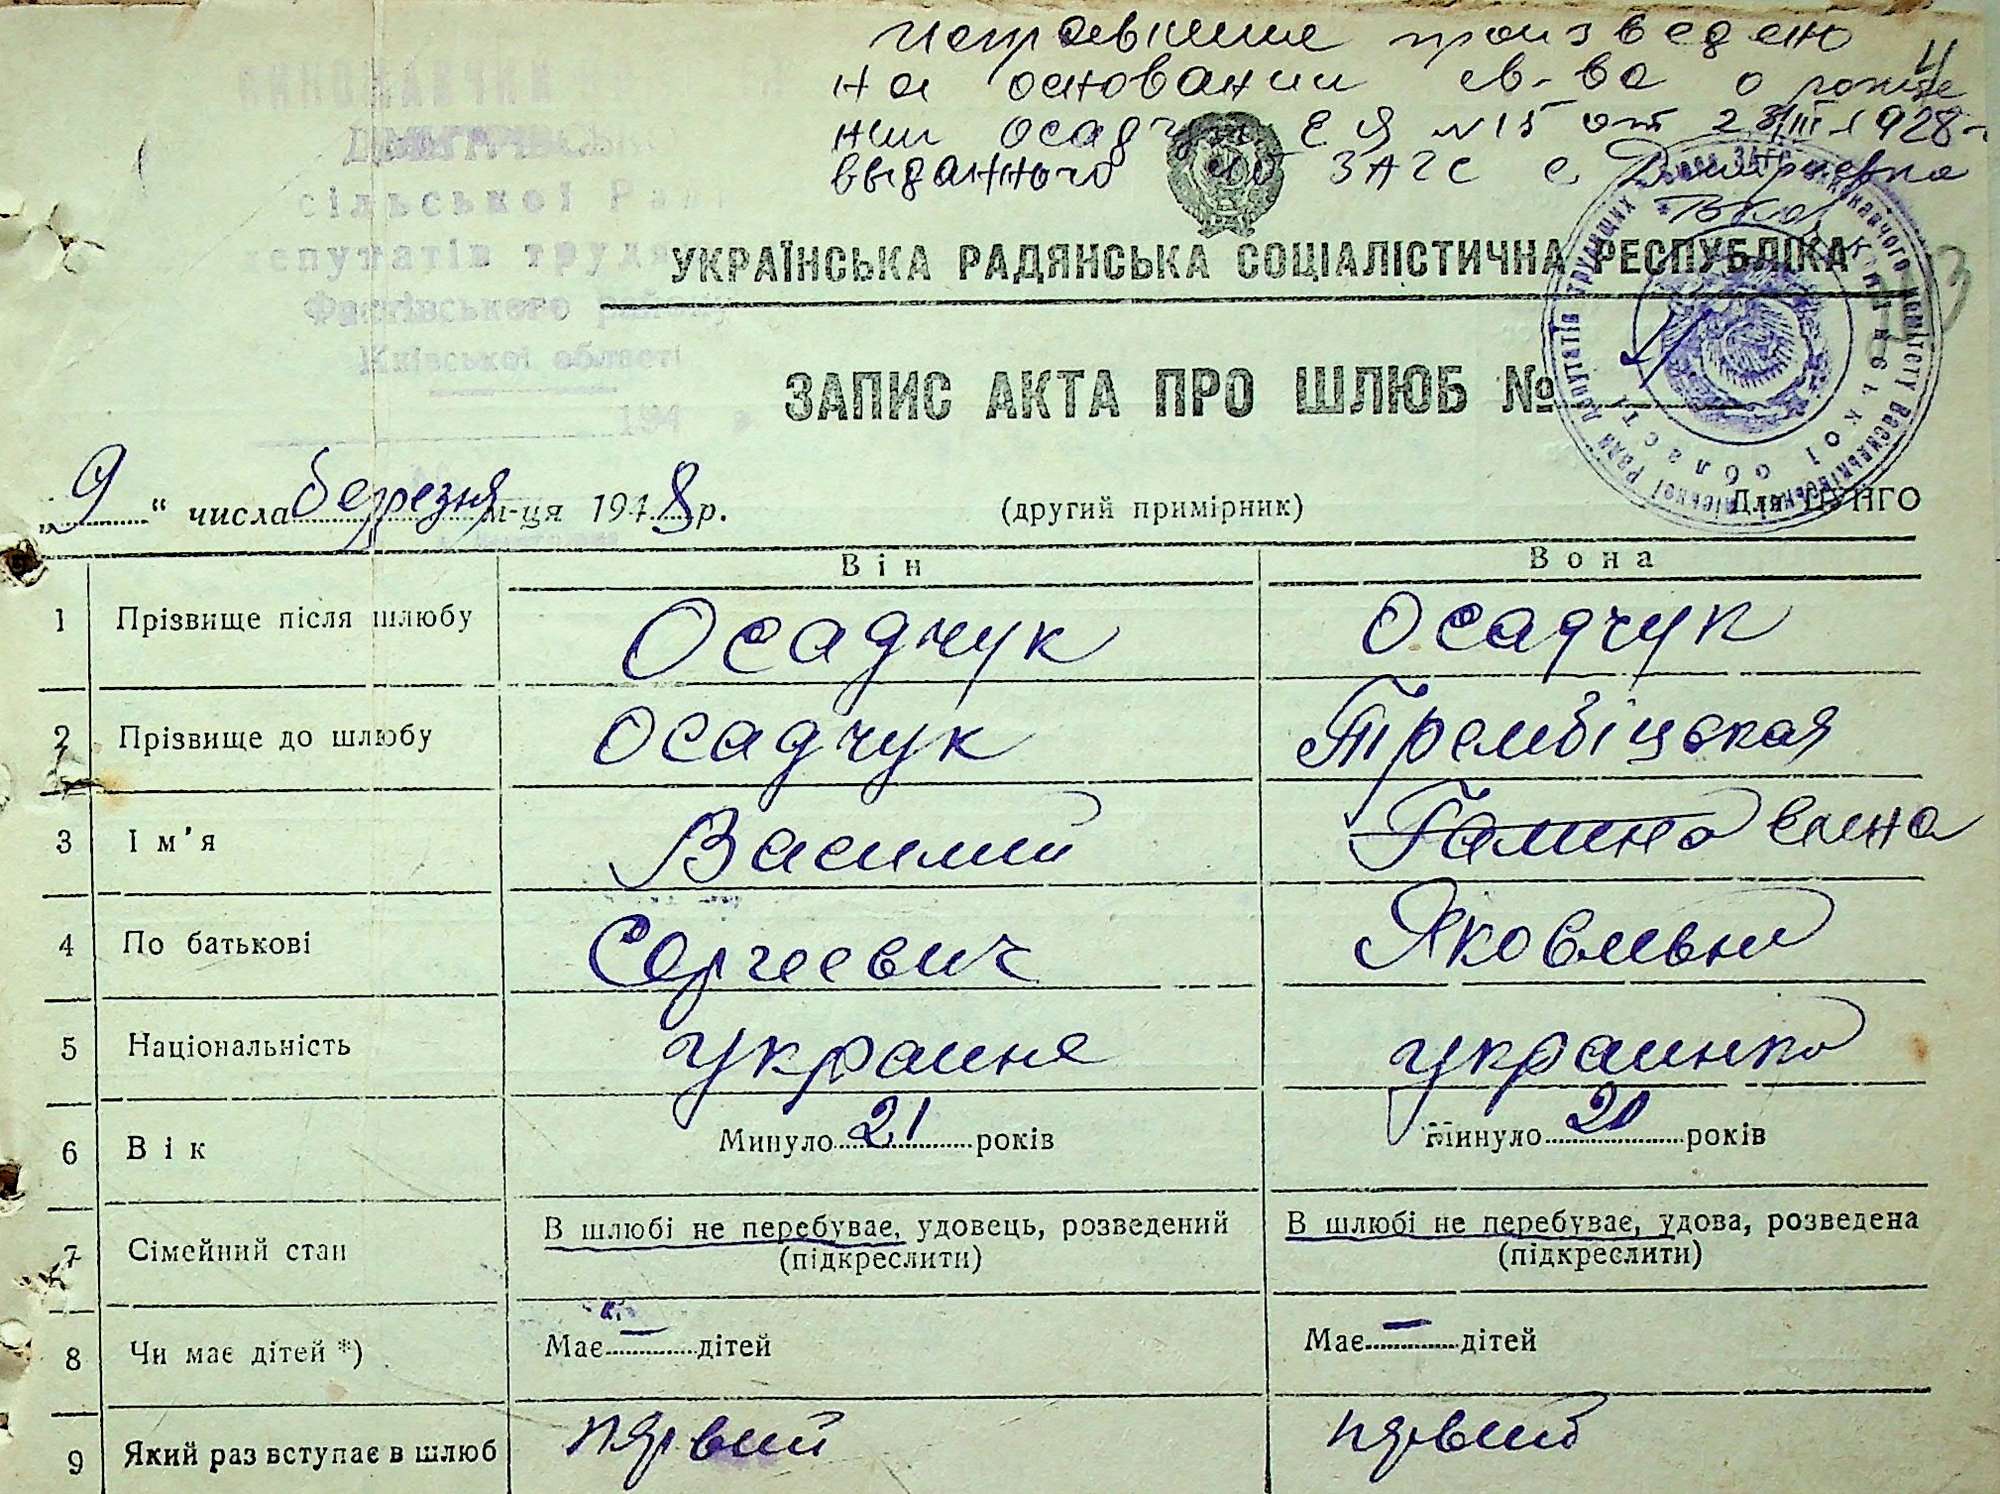 исправление произведено
на основании св-ва о рожде
нии Осадчук Е Я №15 от 28/III 1928 г
выданного ЗАГС с Дмитриевка
сільської Ради
депутатів трудя
Фастівського району
Київської області
194
УКРАЇНСЬКА РАДЯНСЬКА СОЦІАЛІСТИЧНА РЕСПУБЛІКА
ЗАПИС АКТА ПРО ШЛЮБ №
„9“ числа березня м-ця 1948 р. (другий примірник) Для ЦУНГО
Він Вона
1 Прізвище після шлюбу Осадчук Осадчук
2 Прізвище до шлюбу Осадчук Трембіцькая
3 Ім'я Василий Галина Елена
4 По батькові Сергеевич Яковливни
5 Національність украине украинка
6 Вік Минуло 21 років Минуло 20 років
7 Сімейний стан В шлюбі не перебуває, удовець, розведений В шлюбі не перебуває, удова, розведена
(підкреслити) (підкреслити)
8 Чи має дітей *) Має — дітей Має — дітей
9 Який раз вступає в шлюб первий первий